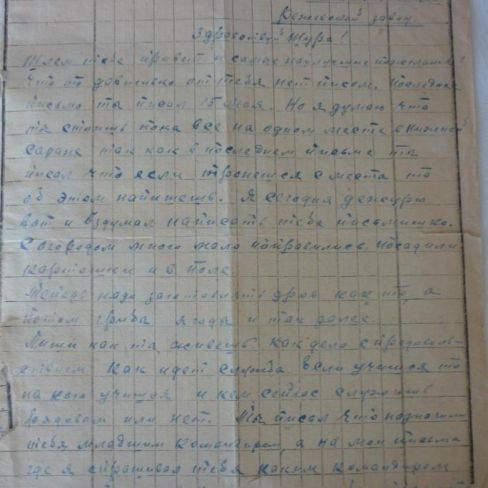 Режевской завод
Здравствуй Шура!
Шлем тебе привет и самые наилучшие пожелания!
Что то довтивно от тебя нет писем. Последнее
письмо ты писал 15 мая. Но я думаю что
ты стоишь пока все на одном месте в нижней
салде так как в последнем письме ты
писал что если тронешся с места то
об этом напишешь. Я сегодня дежурю
вот и вздумал написать тебе письмишко.
С огородом мало мало поправились. посадили
картошки и в поле
Теперь надо заготовлять дров как то, а
потом грибы ягода и так далее.
Пиши как ты живешь как дело с продоволь-
ствием как идет служба если учишся то
на кого учишся и кем сейчас служишь
рядовым или нет. Ты писал что назначили
тебя младшим командиром, а на мои письма
где я спрашивал тебя каким командиром